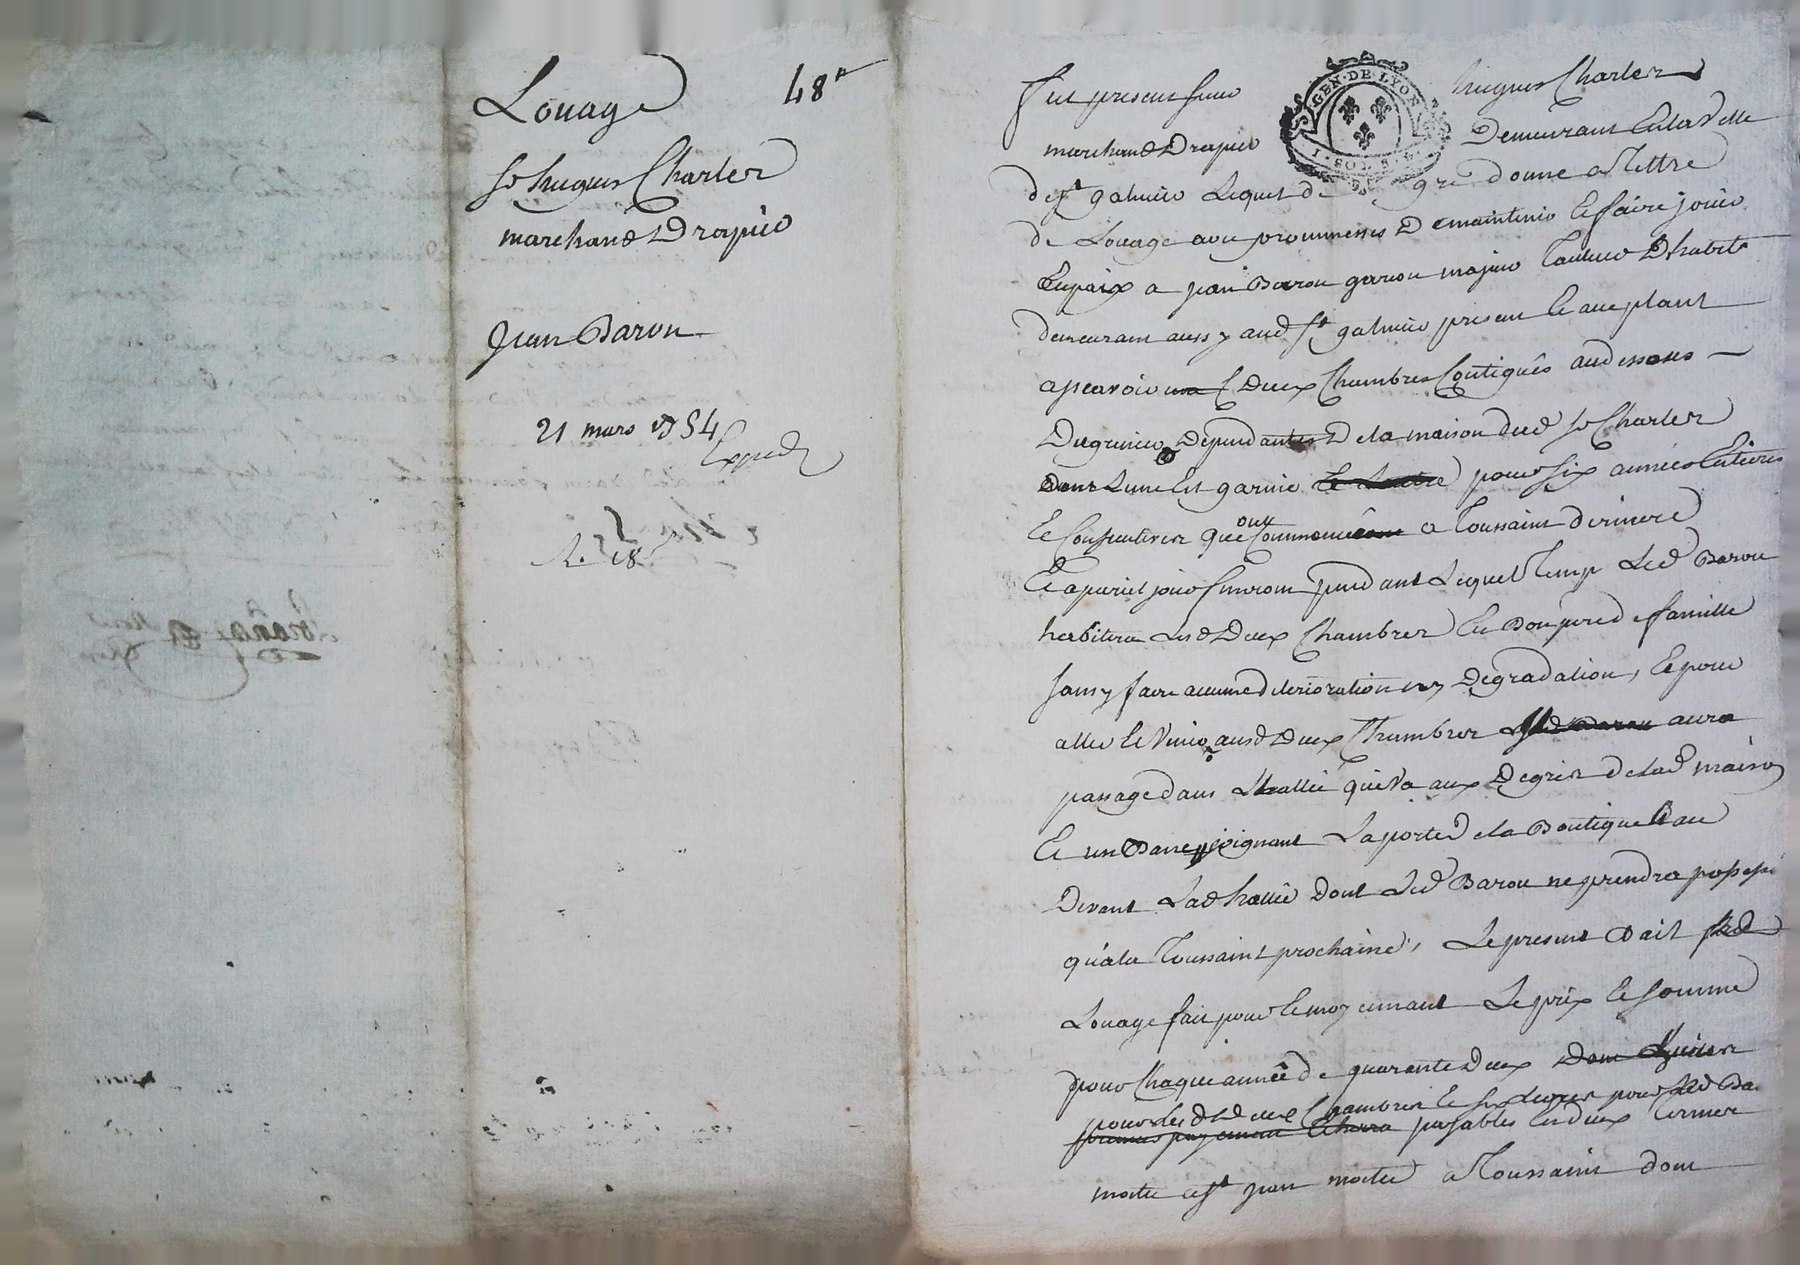 Louage 48#
Sr hugues Charles
marchand Drapier
Jean Baron
21 mars 1754
Expédié
Fut present sieur hugues Charles
GEN. DE LYON
marchand Drapier Demeurant En la ville
de st galmier Lequel de gré donne a tittre
de Louage avec prommesses De maintenir Et faire jouir
En paix a jean Baron garçon majeur tailleur D'habits
demeurant aussy aud st galmier present Et acceptant
a scavoir Deux Chambres Contiguês au dessous
Du grenier Dépendantes De la maison dud sr Charles
dont L'une Est garnie pour six années Entieres
Et Consecutives qui ont Commencé a Toussaint derniere
Et a pareil jour finiront pendant Lequel Temp Led Baron
habitera Lesd Deux Chambres En Bon pere de famille
sans y faire aucune déterioration ny Degradation, Et pour
aller Et venir ausd Deux Chambres Led Baron aura
passage dans L'allée qui va aux Degrés de lad maison
Et un Banc joignant La porte de la Boutique Et au
Devant Lad hallée dont Led Baron ne prendra possession
qu'a la Toussaint prochaine, Le present Bail
Louage fait pour Et moyennant Le prix Et somme
pour Chaque année de quarante Deux
pour Lesd Deux Chambres Et six Livres pour led Ba
payables En deux termes
moitié a st jean moitié a Toussaint dont